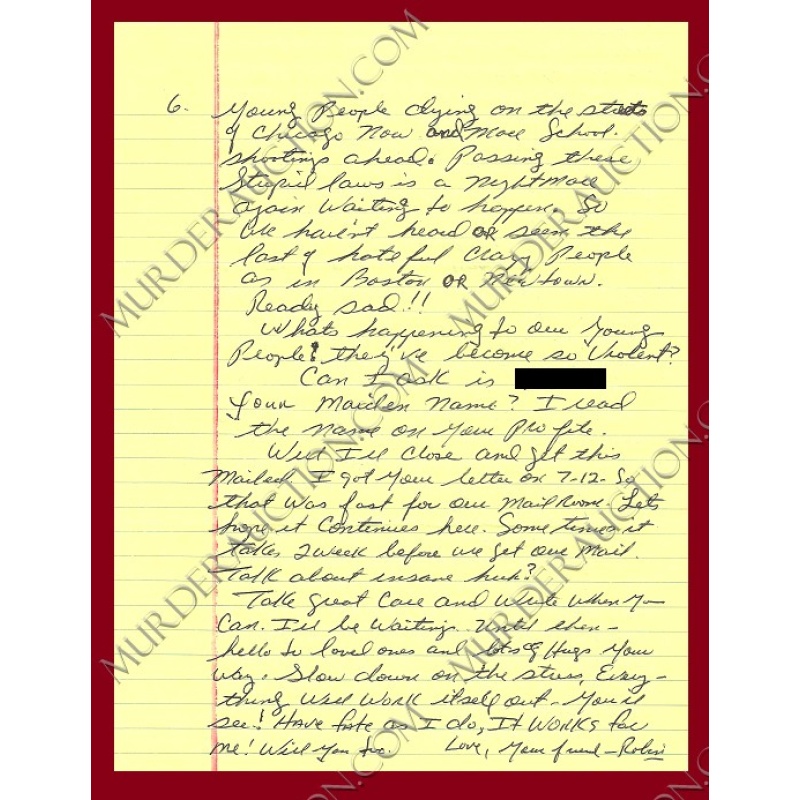 6. Young People dying on the streets
of Chicago Now and More School
shootings ahead. Passing these
Stupid laws is a Nightmare
again Waiting to happen. So
we haven't heard or seen the
last of hateful Crazy People
as in Boston or Newtown.
Really sad!!
Whats happening to our Young
People? the've become so Violent?
Can I ask is
Your Maiden Name? I read
the Name on Your Profile.
Well I'll close and get this
Mailed. I got Your letter on 7-12- So
that was fast for our Mail Room. Lets
hope it Continues here. Sometimes it
takes 2 week before we get our Mail.
Talk about insane huh?
Take great Care and Write When You
Can. I'll be Waiting. Until then-
hello to loved ones and lots of Hugs Your
Way. Slow down on the stress, Every-
thing Will Work itself out- You'll
see! Have fate as I do, It Works for
me! Will You too. Love, Your friend - Robin
MURDERAUCTION.COM